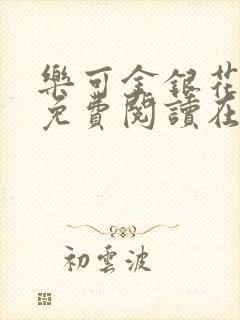 樂可金銀花
免費閱讀在
初雲波